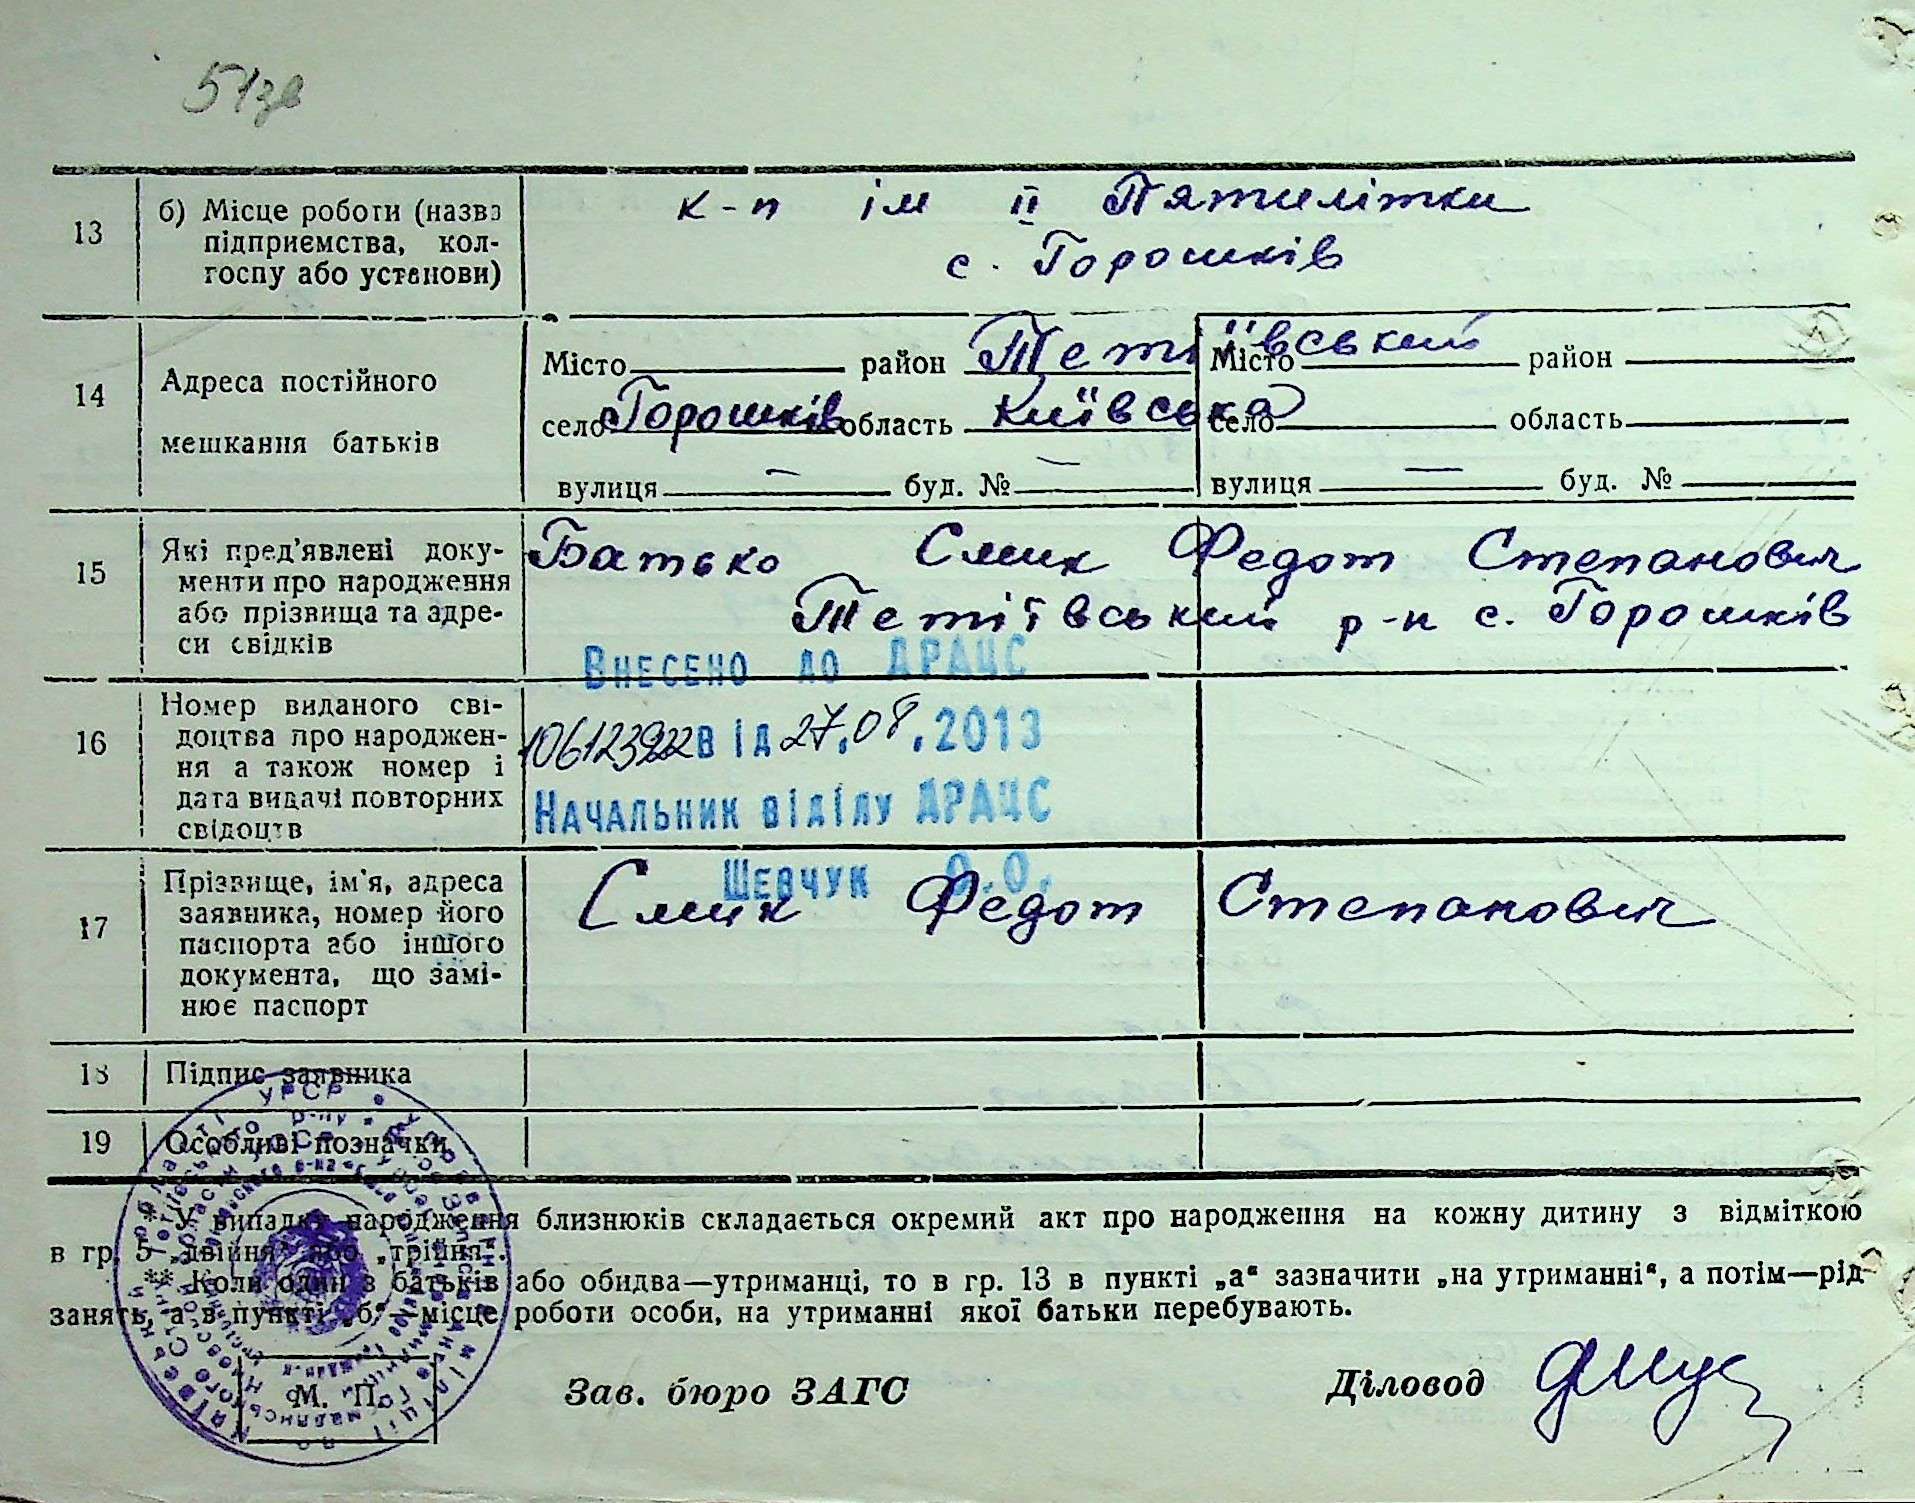 51зв
13 б) Місце роботи (назва підприємства, колгоспу або установи)
к-п ім II Пятилітки
с. Горошків
14 Адреса постійного мешкання батьків
Місто район Тетіївський Місто район
село Горошків область Київська село область
вулиця — буд. № — вулиця — буд. №
15 Які пред'явлені документи про народження або прізвища та адреси свідків
Батько Смик Федот Степанович
Тетіївський р-н с. Горошків
Внесено до ДРАЦС
16 Номер виданого свідоцтва про народження а також номер і дата видачі повторних свідоцтв
від 27.08.2013
Начальник відділу ДРАЦС
Шевчук О.О.
17 Прізвище, ім'я, адреса заявника, номер його паспорта або іншого документа, що замінює паспорт
Смик Федот Степанович
18 Підпис заявника
19 Особливі позначки
* У випадку народження близнюків складається окремий акт про народження на кожну дитину з відміткою
в гр. 5 „двійня“ або „трійня“.
** Коли один з батьків або обидва—утриманці, то в гр. 13 в пункті „а“ зазначити „на утриманні“, а потім—рід
занять, а в пункті „б“ місце роботи особи, на утриманні якої батьки перебувають.
М. П.
Зав. бюро ЗАГС Діловод